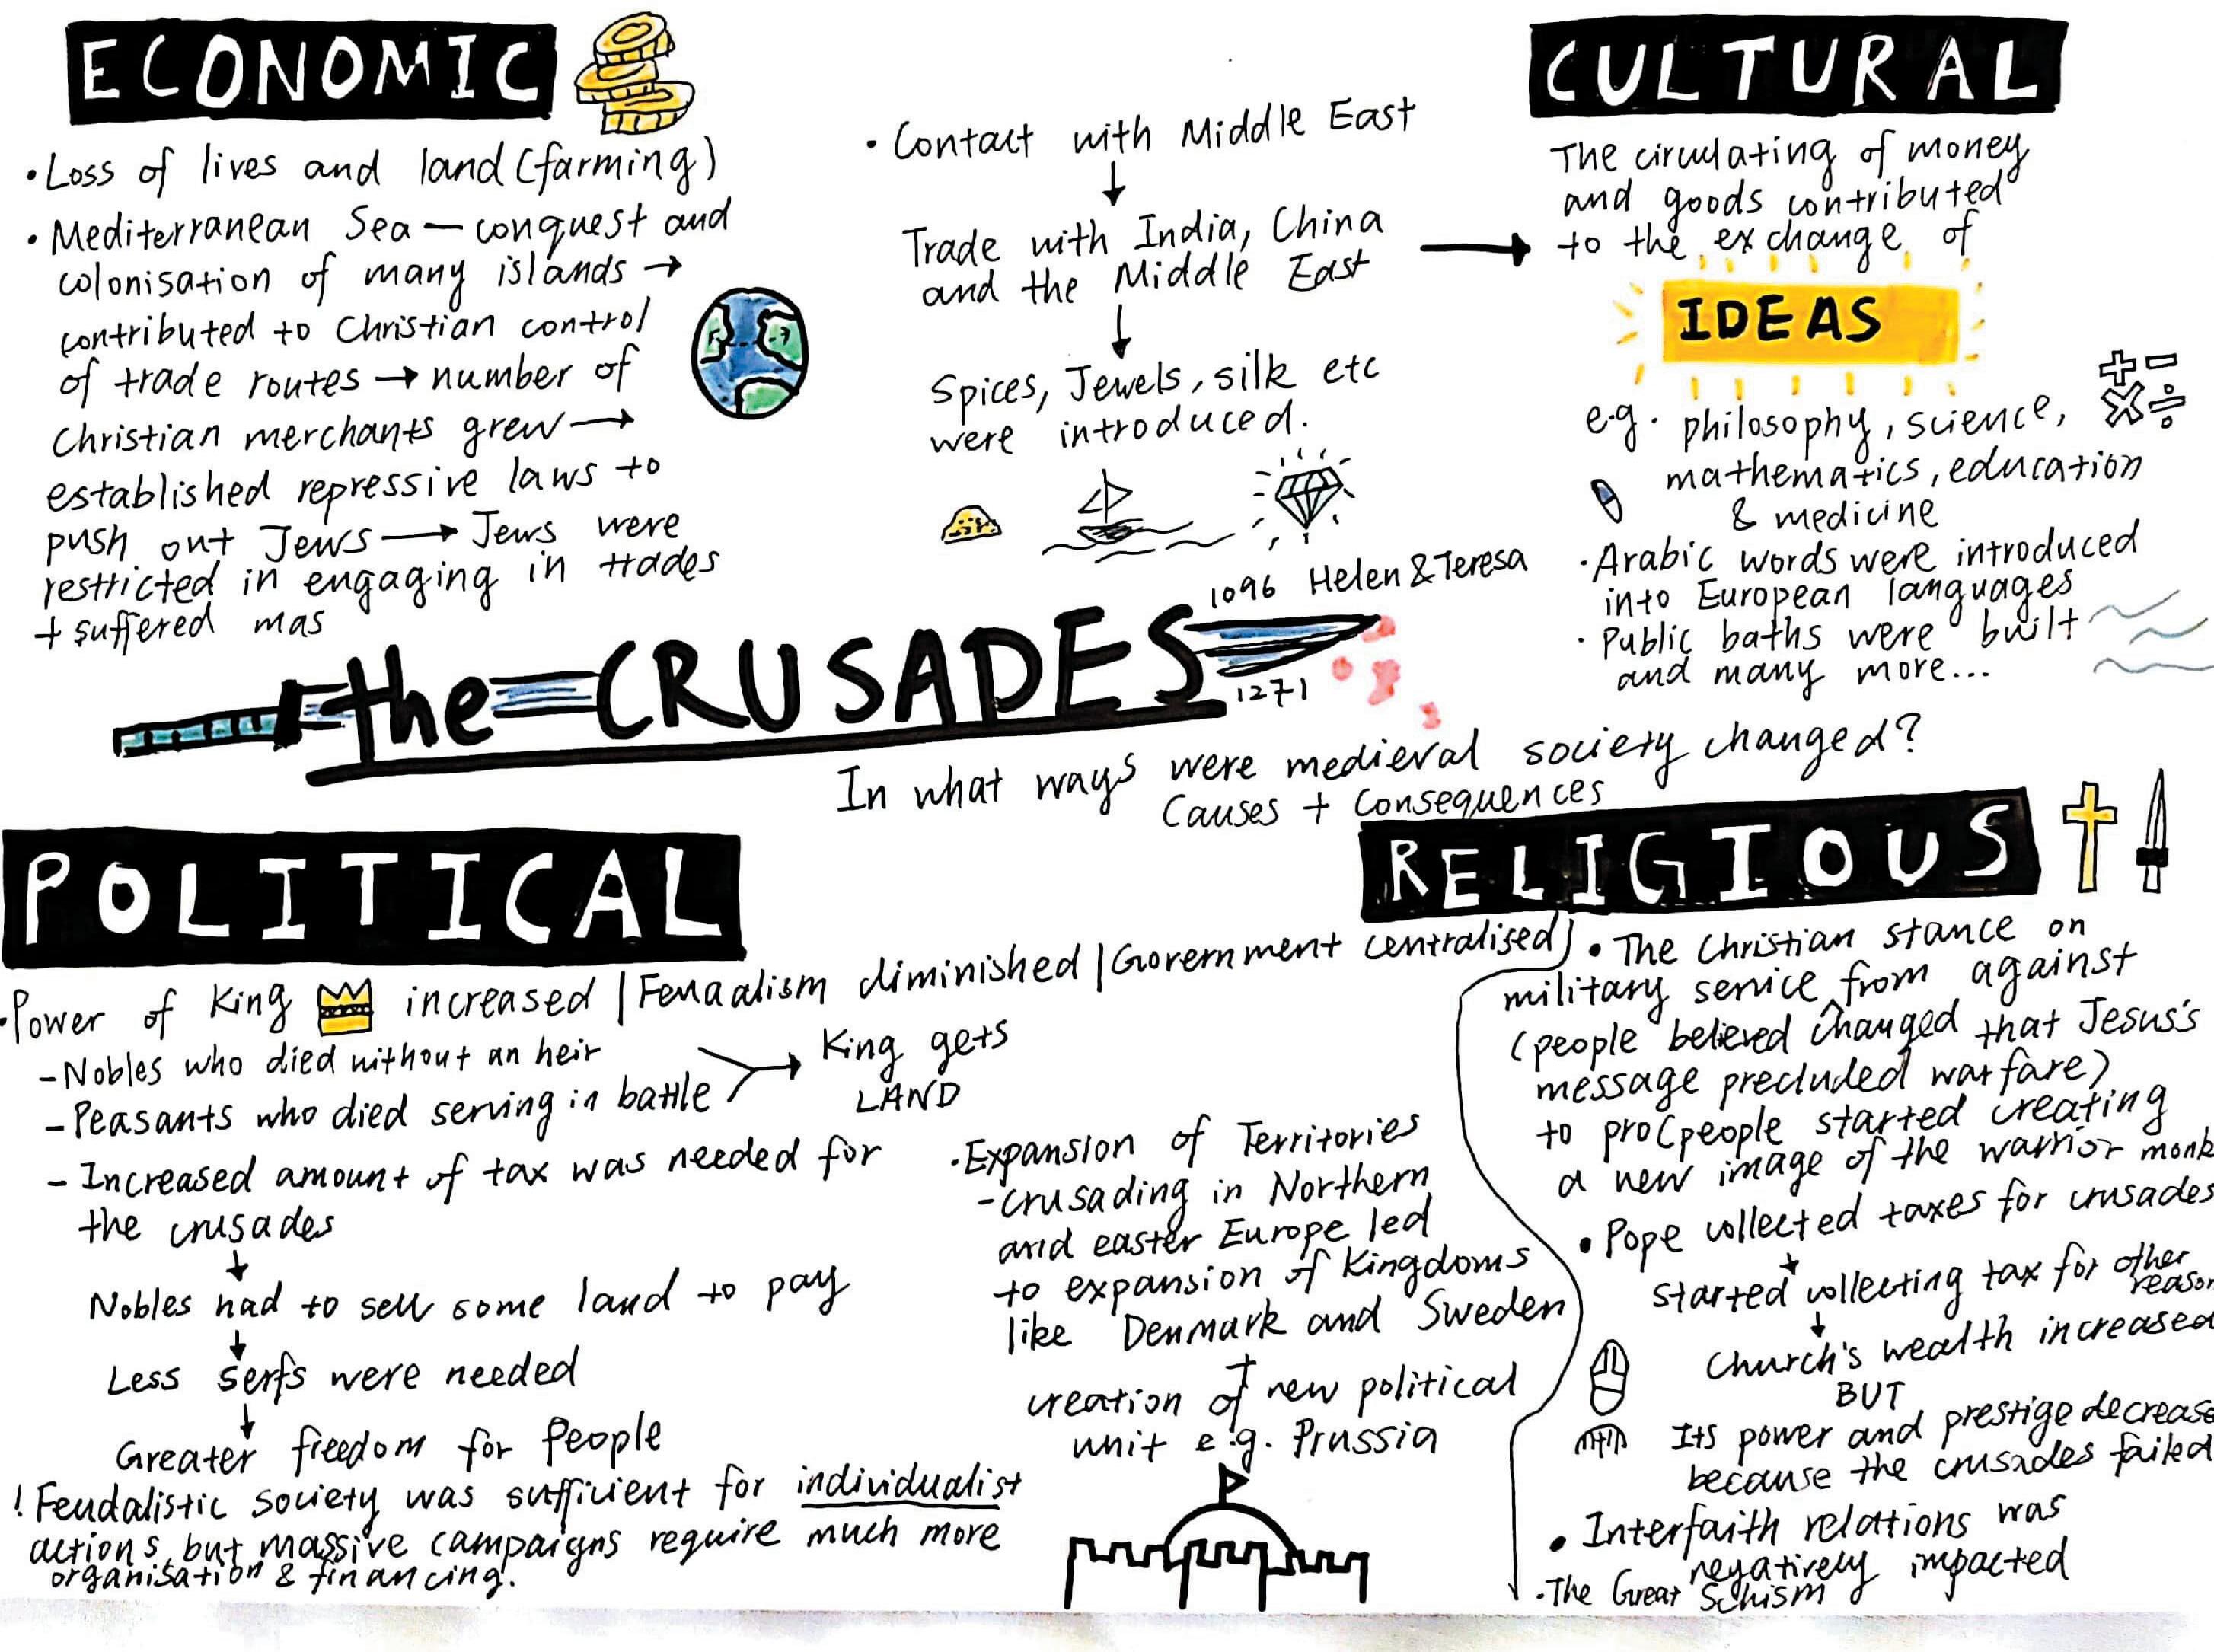 ECONOMIC
• Loss of lives and land (farming)
• Mediterranean Sea — conquest and
colonisation of many islands →
contributed to Christian control
of trade routes → number of
Christian merchants grew →
established repressive laws to
push out Jews → Jews were
restricted in engaging in trades
+ suffered mas
• Contact with Middle East
↓
Trade with India, China →
and the Middle East
↓
Spices, Jewels, silk etc
were introduced.
CULTURAL
The circulating of money
and goods contributed
to the exchange of
IDEAS
e.g. philosophy, science,
mathematics, education
& medicine
+ −
× ÷
• Arabic words were introduced
into European languages
• Public baths were built
and many more...
1096 Helen & Teresa
the CRUSADES
1271
In what ways were medieval society changed?
Causes + Consequences
POLITICAL
• Power of King increased | Feudalism diminished | Government centralised
- Nobles who died without an heir
- Peasants who died serving in battle
→ King gets
LAND
- Increased amount of tax was needed for
the crusades
↓
Nobles had to sell some land to pay
↓
Less serfs were needed
↓
Greater freedom for People
! Feudalistic society was sufficient for individualist
actions, but massive campaigns require much more
organisation & financing.
• Expansion of Territories
- crusading in Northern
and easter Europe led
to expansion of Kingdoms
like Denmark and Sweden
+
creation of new political
unit e.g. Prussia
RELIGIOUS
• The Christian stance on
military service ^ from against
(people believed changed that Jesus's
message precluded warfare)
to pro (people started creating
a new image of the warrior monk
• Pope collected taxes for crusades
↓
started collecting tax for other
reason
↓
Church's wealth increased
BUT
Its power and prestige decrease
because the crusades failed
• Interfaith relations was
negatively impacted
• The Great Schism